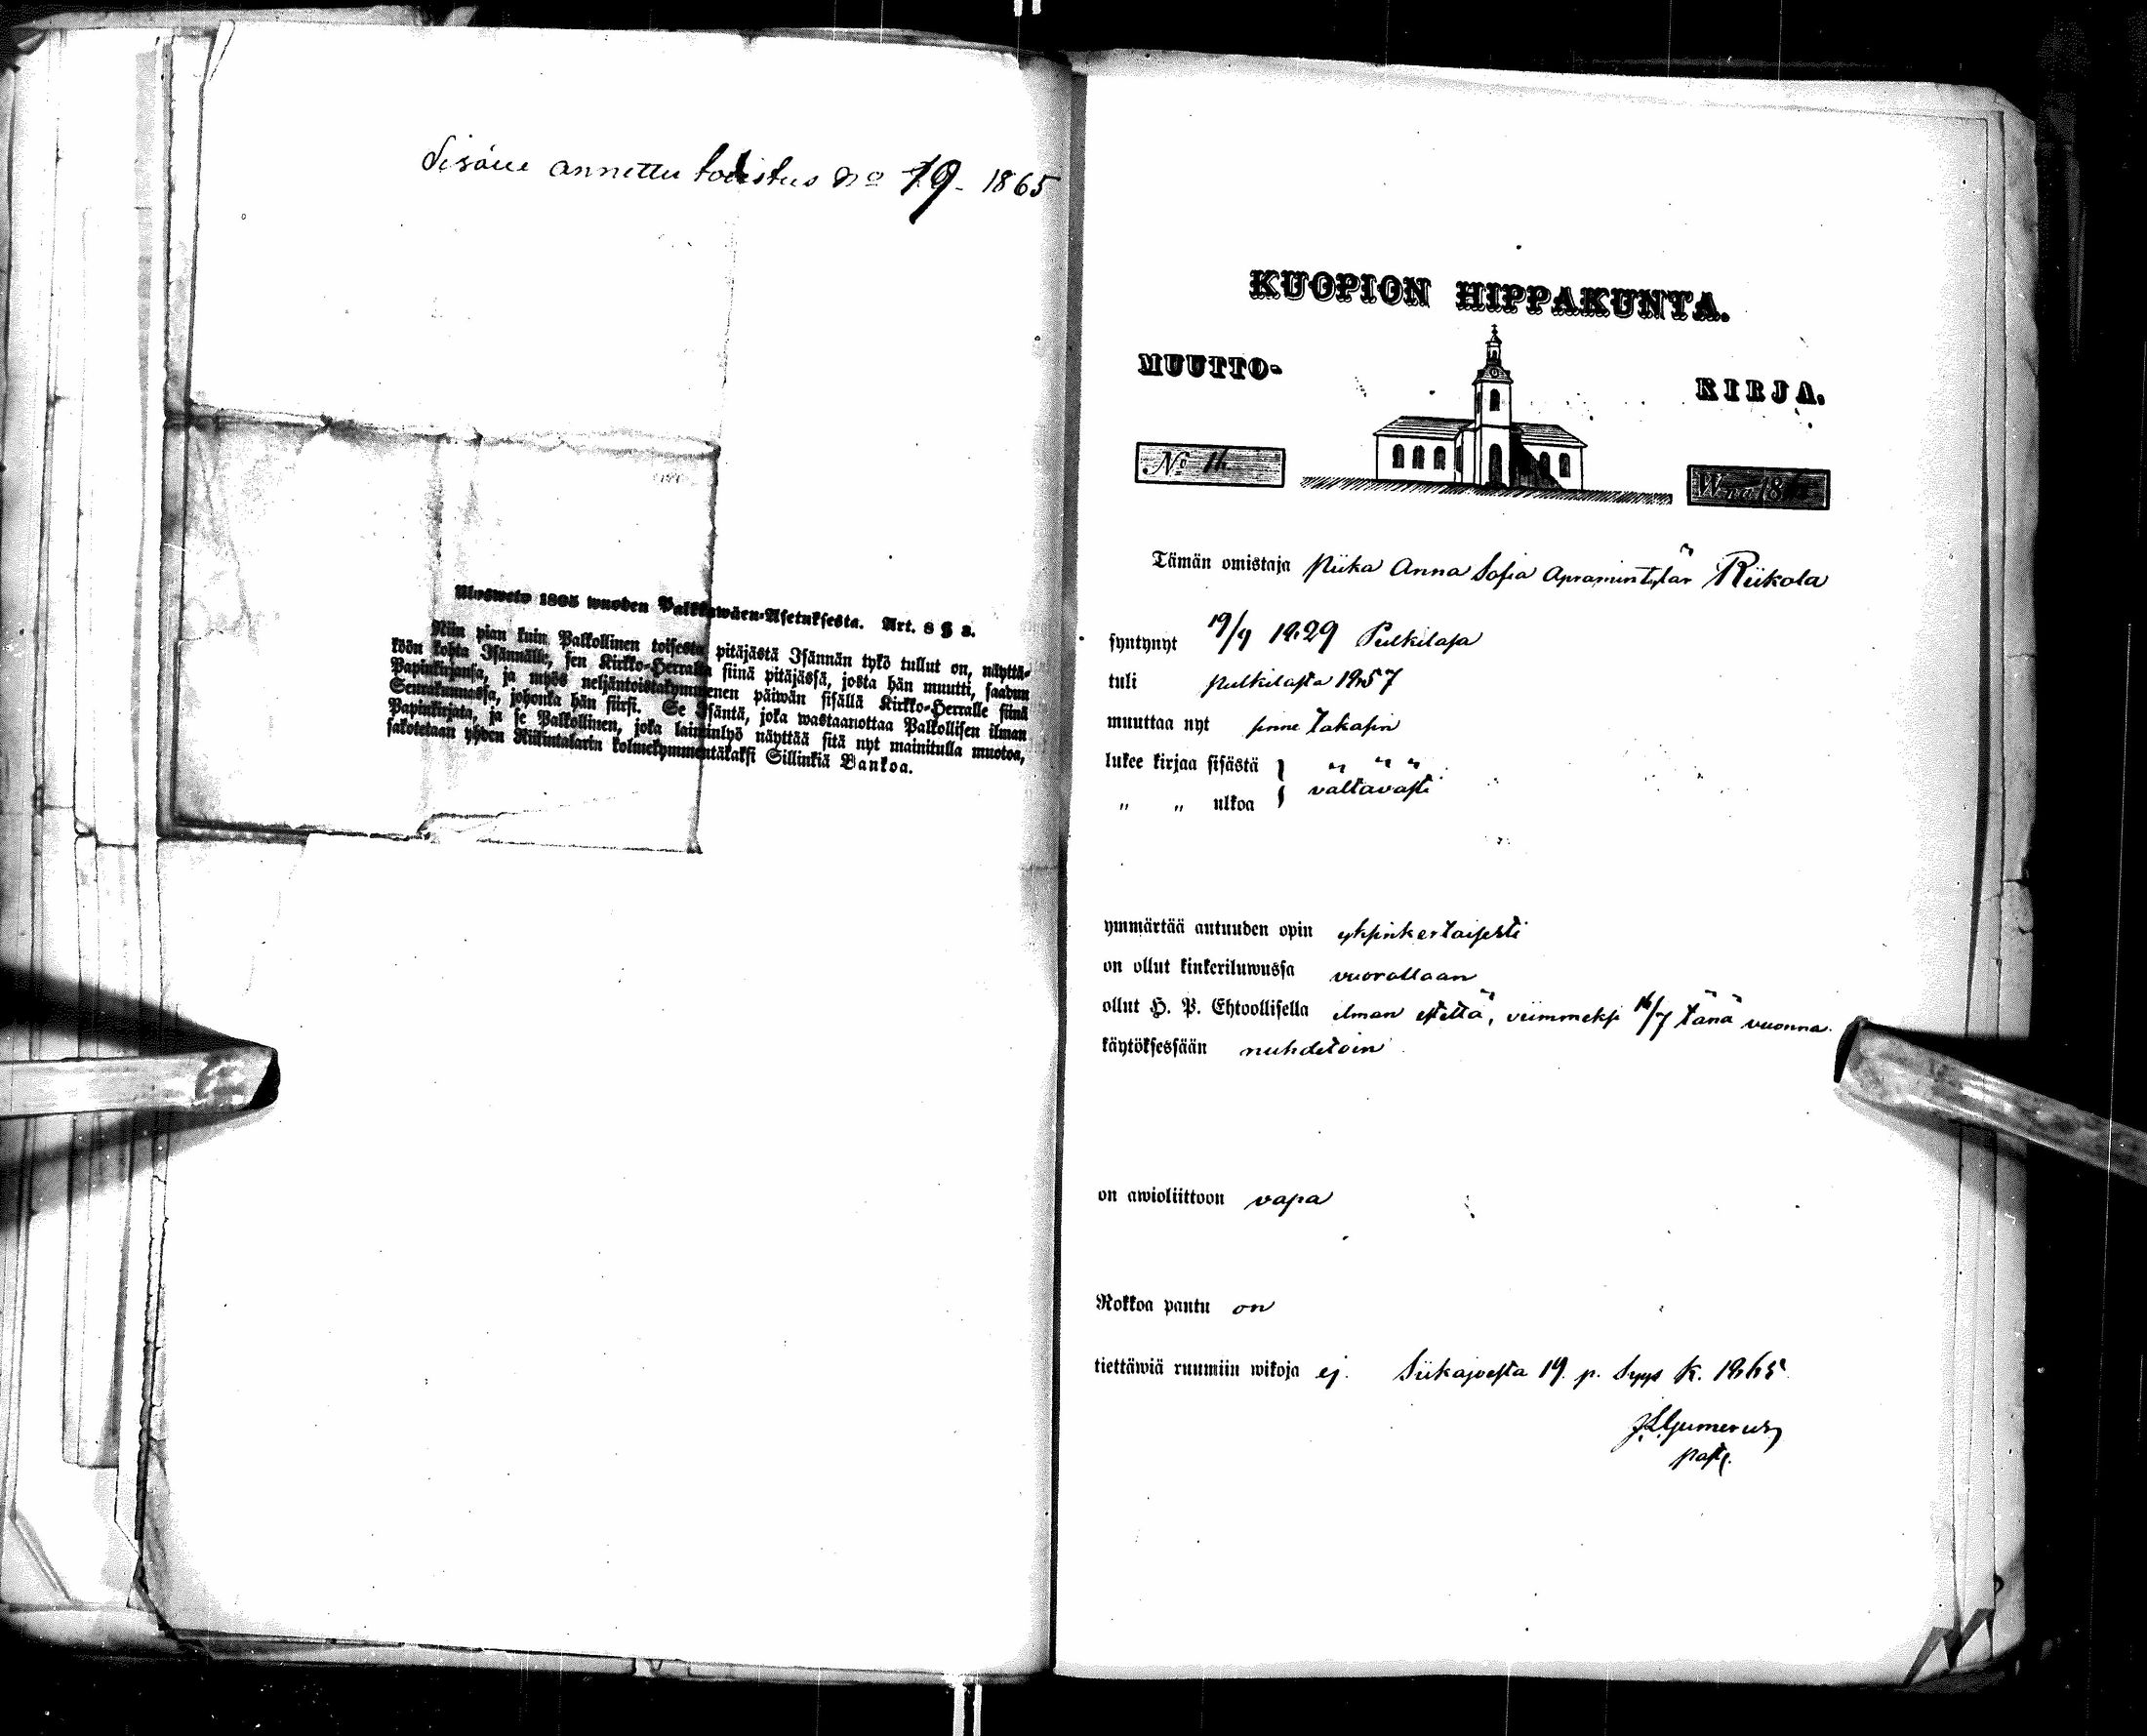 Sisään annettu todistus No 19. 1865
Ulosweto 1805 wuoden Palkkawäen-Asetuksesta. Art. 8 § 3.
Niin pian kuin Palkollinen toisesta pitäjästä Isännän tykö tullut on, näyttä-
köön kohta Isännälle, sen Kirkko-Herralta siinä pitäjässä, josta hän muutti, saadun
Papinkirjansa, ja myös neljäntoistakymmenen päiwän sisällä Kirkko-Herralle siinä
Seurakunnassa, johonka hän siirsi. Se Isäntä, joka wastaanottaa Palkollisen ilman
Papinkirjata, ja se Palkollinen, joka laiminlyö näyttää sitä nyt mainitulla muotoa,
sakotetaan yhden Riikintalarin kolmekymmentäkaksi Sillinkiä Bankoa.
KUOPION HIPPAKUNTA.
MUUTTO-
KIRJA.
No
Wna 18
Tämän omistaja Piika Anna Sofia Apramintytär Riikola
syntynyt 19/9 1829 Pulkilasa
tuli Pulkilasta 1857
muuttaa nyt sinne takasin
lukee kirjaa sisästä }
„ „ ulkoa } välttävästi
ymmärtää autuuden opin yksinkertaisesti
on ollut kinkeriluwussa vuorollaan
ollut H. P. Ehtoollisella ilman estettä, viimmeksi 16/7 tänä vuonna.
käytöksessään nuhdetoin
on awioliittoon vapa
Rokkoa pantu on
tiettäwiä ruumiin wikoja ej. Siikajoesta 19. p. Syys K. 1865
J.L.Gummerus
past.